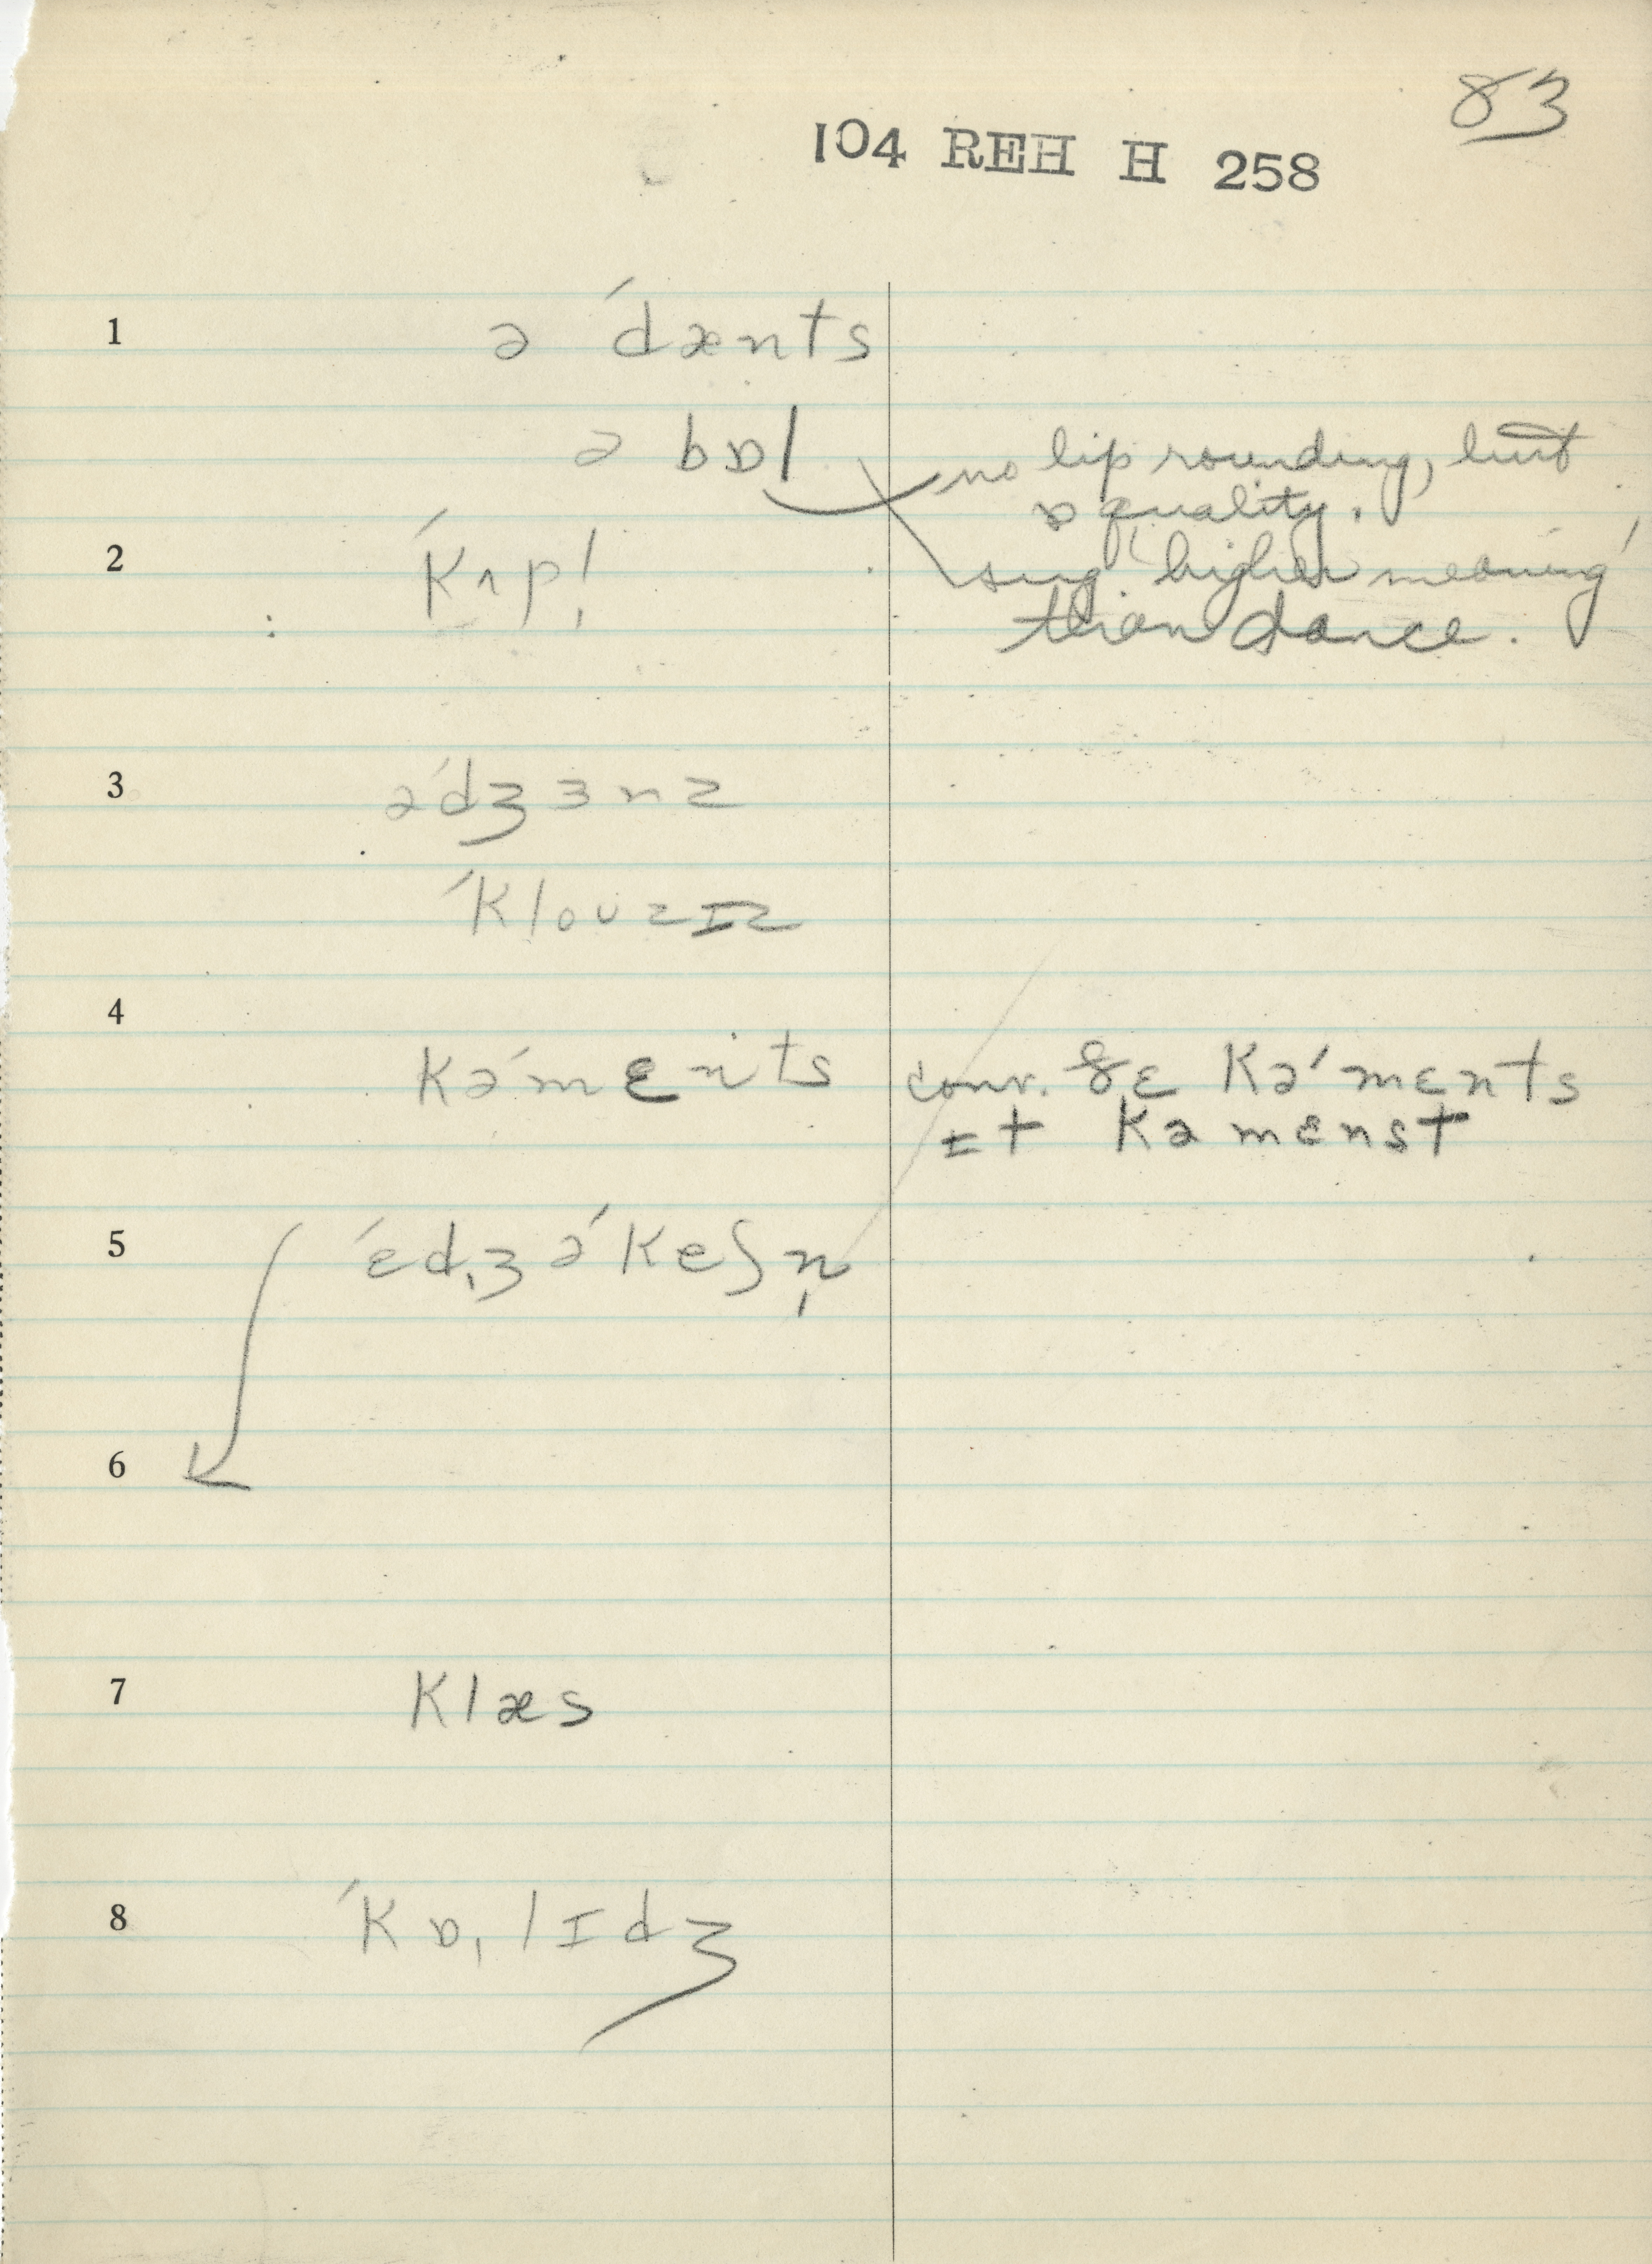 83
104 REH H 258
1 ə ˈdænts
ə bɒl no lip rounding, but
ɒ quality.
2 ˈkʌpl̩ sug. higher meaning
than dance.
3 əˈdʒɜnz
ˈkloʊzɪz
4
kəˈmɛnts conv. ðɛ kəˈmɛnts
ɪt kəmɛnst
5 ˈɛdˌʒəˈkeʃn̩
6
7 klæs
8 ˈkɒˌlɪdʒ